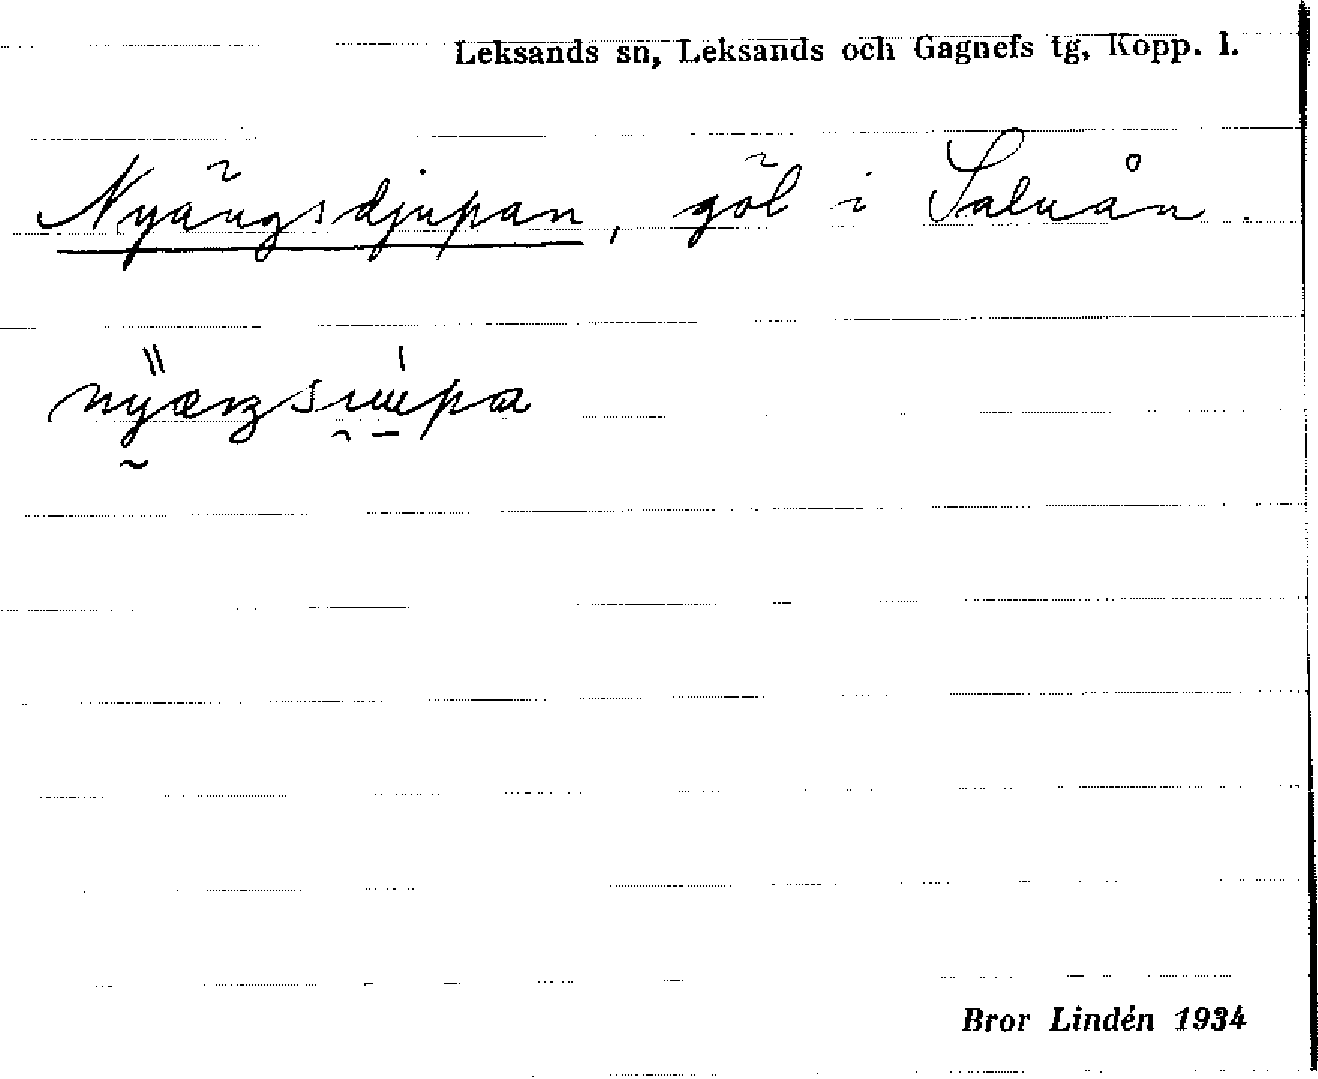 Leksands sn, Leksands och Gagnefs tg, Kopp. l.
Nyängsdjupan, göl i Saluån.
Bror Lindén 1934